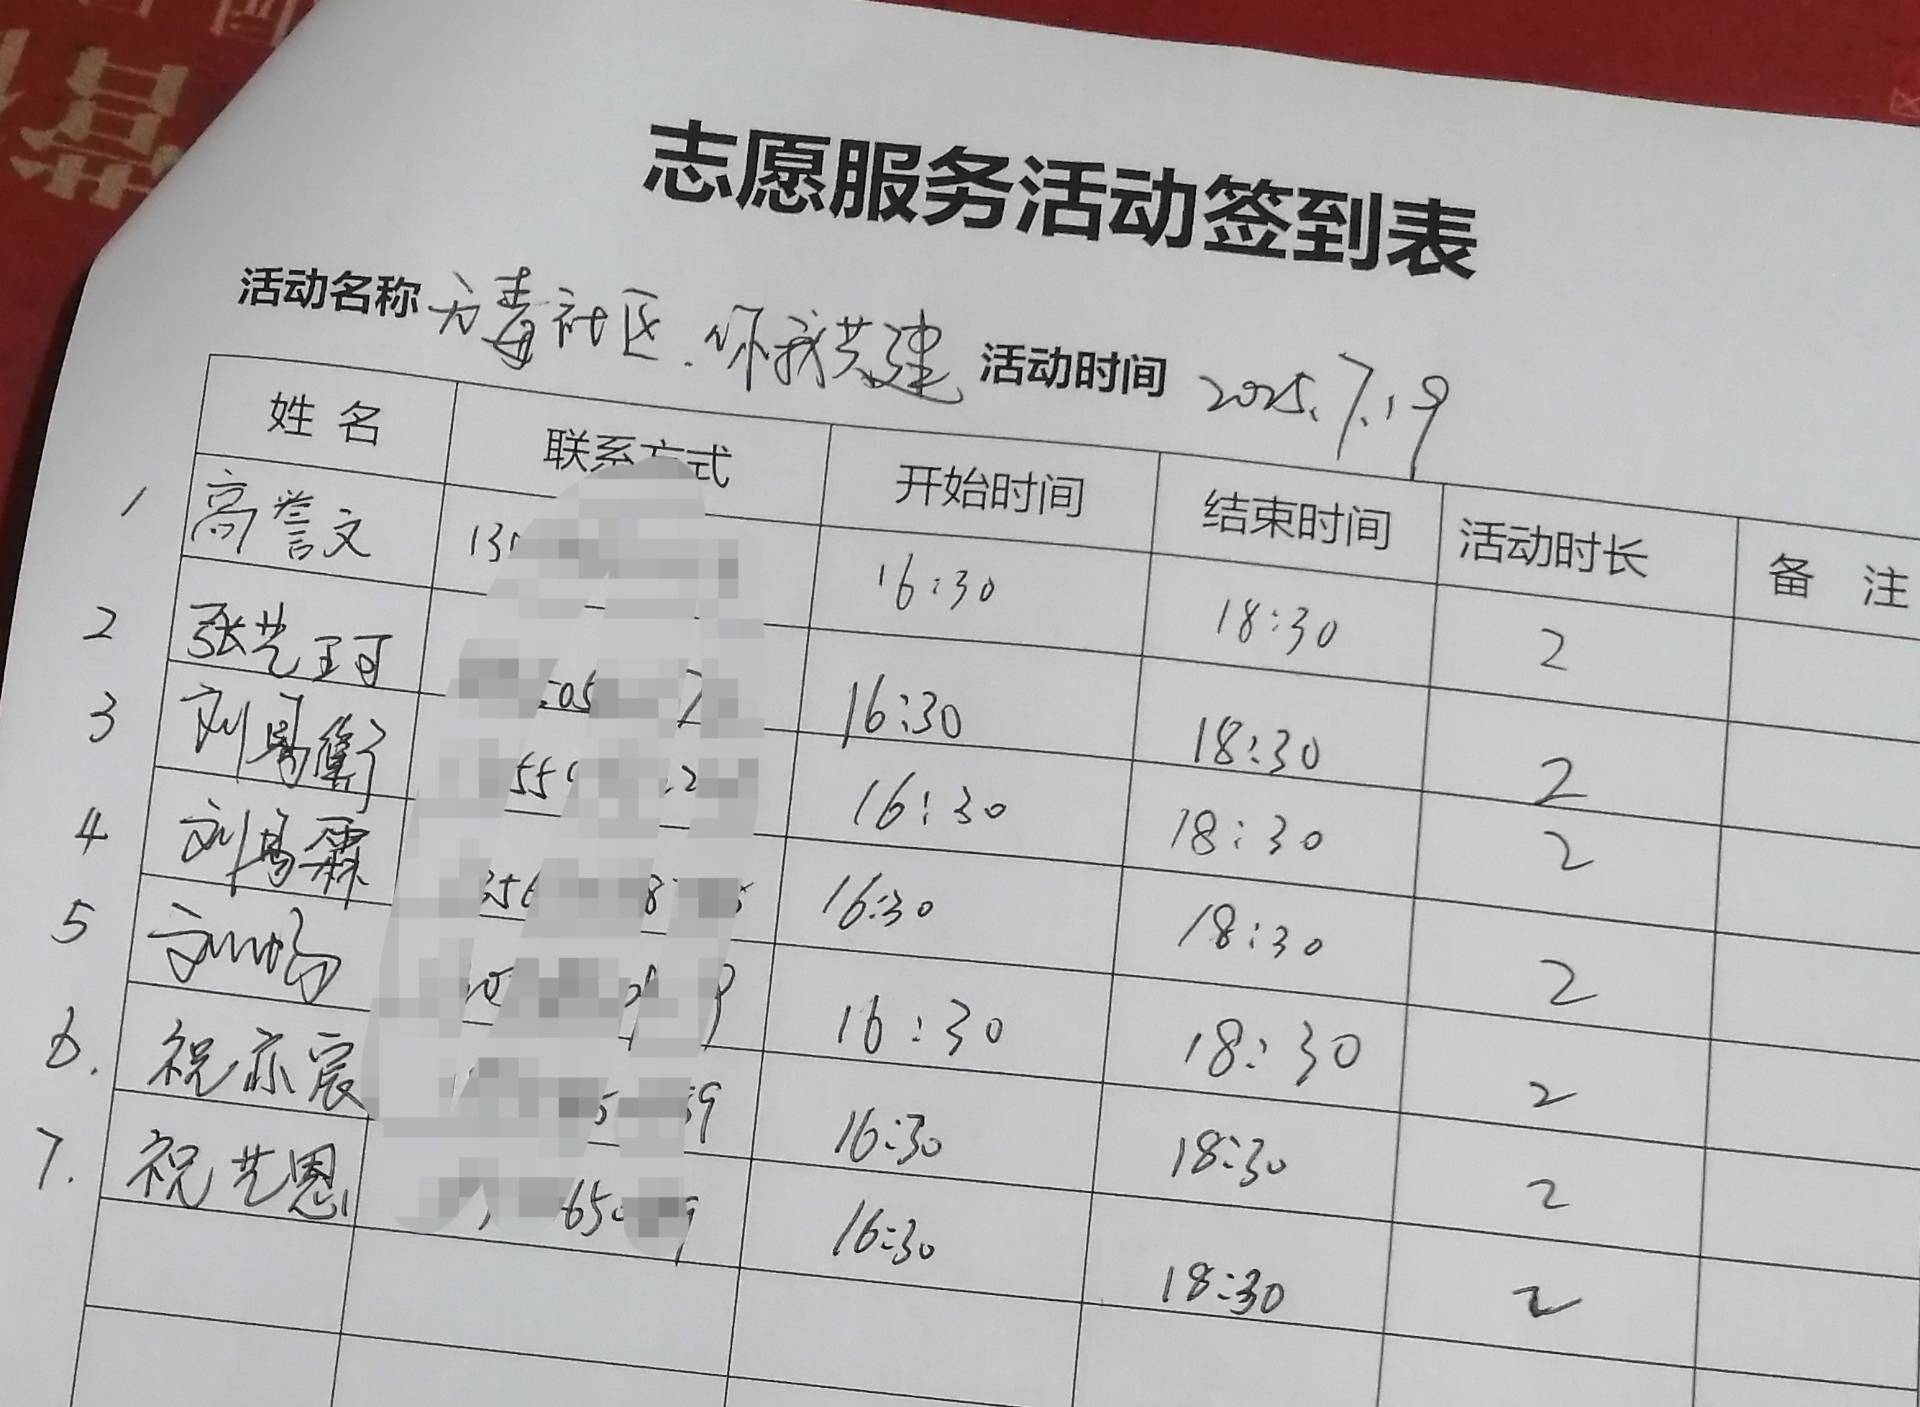 志愿服务活动签到表
活动名称 无毒社区.你我共建 活动时间 2025.7.19
姓名 联系方式 开始时间 结束时间 活动时长 备注
1 高誉文 16:30 18:30 2
2 张艺珂 16:30 18:30 2
3 刘 16:30 18:30 2
4 刘 霖 16:30 18:30 2
5 16:30 18:30 2
6. 祝亦宸 16:30 18:30 2
7. 祝艺恩 16:30 18:30 2